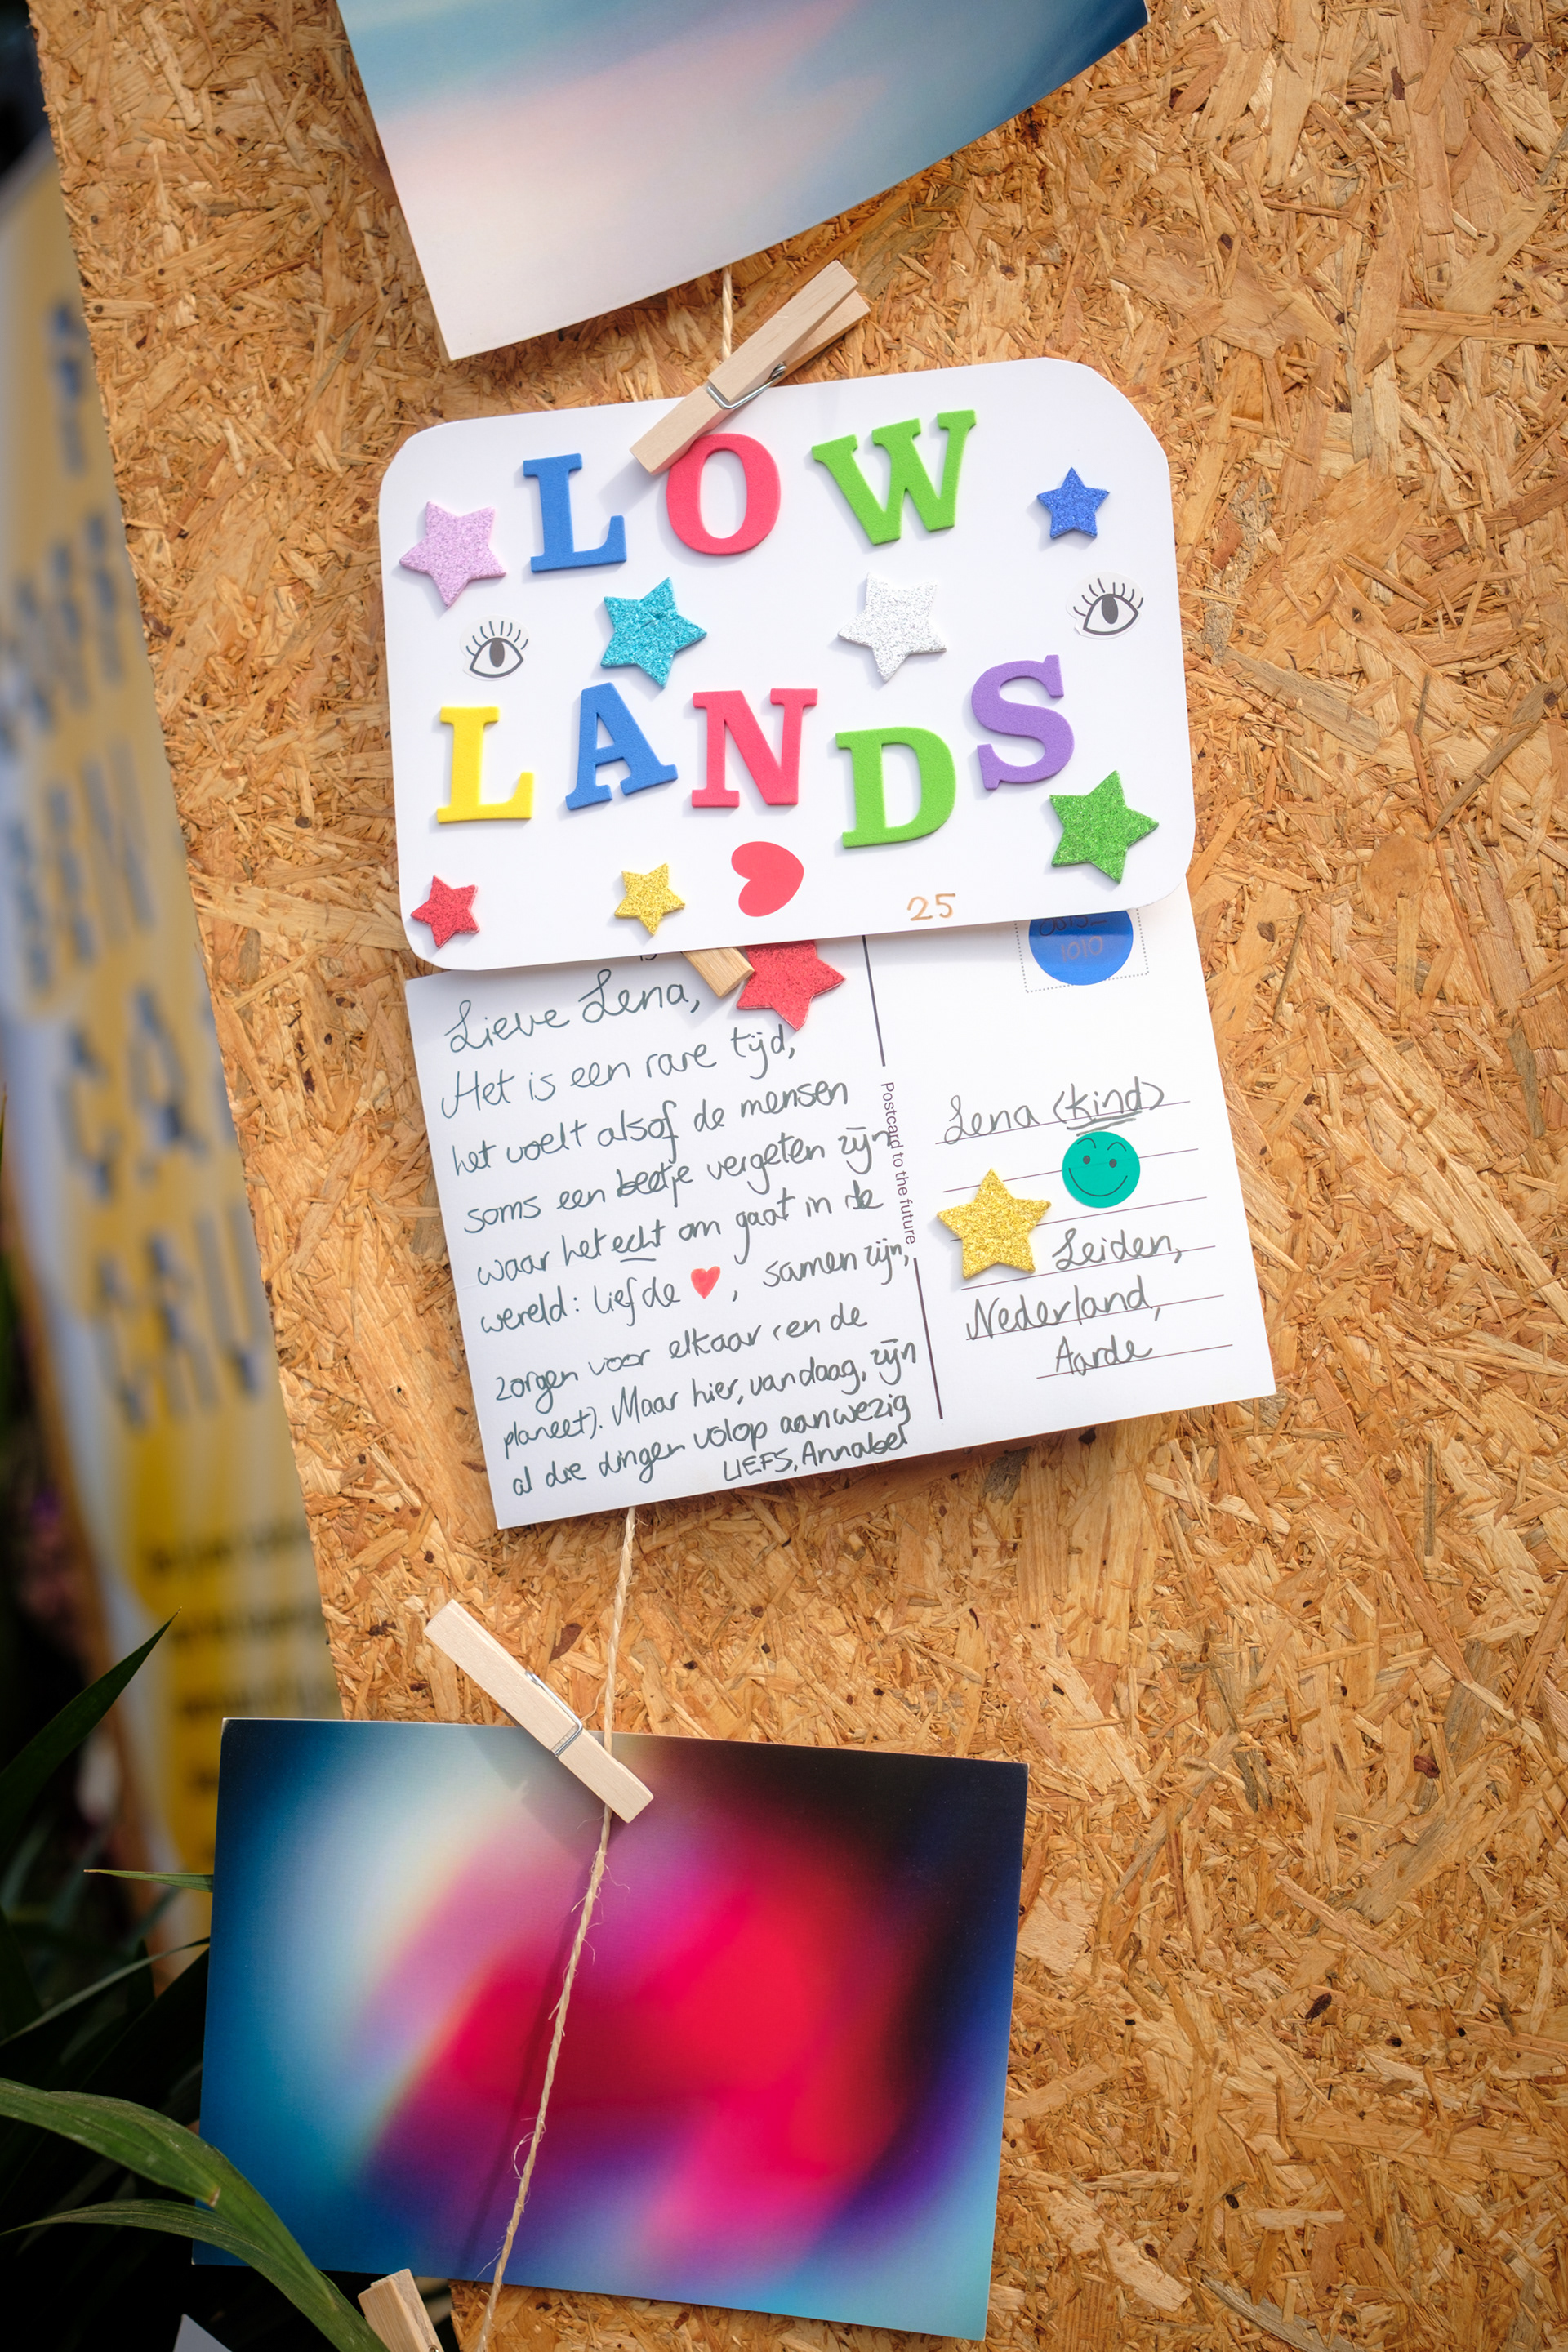 LOW
LANDS
25
1010
Lieve Lena,
Het is een rare tijd,
het voelt alsof de mensen
soms een beetje vergeten zijn
waar het echt om gaat in de
wereld: liefde ❤, samen zijn,
zorgen voor elkaar (en de
planeet). Maar hier, vandaag, zijn
al die dingen volop aanwezig
LIEFS, Annabel
Postcard to the future
Lena (kind)
Leiden,
Nederland,
Aarde